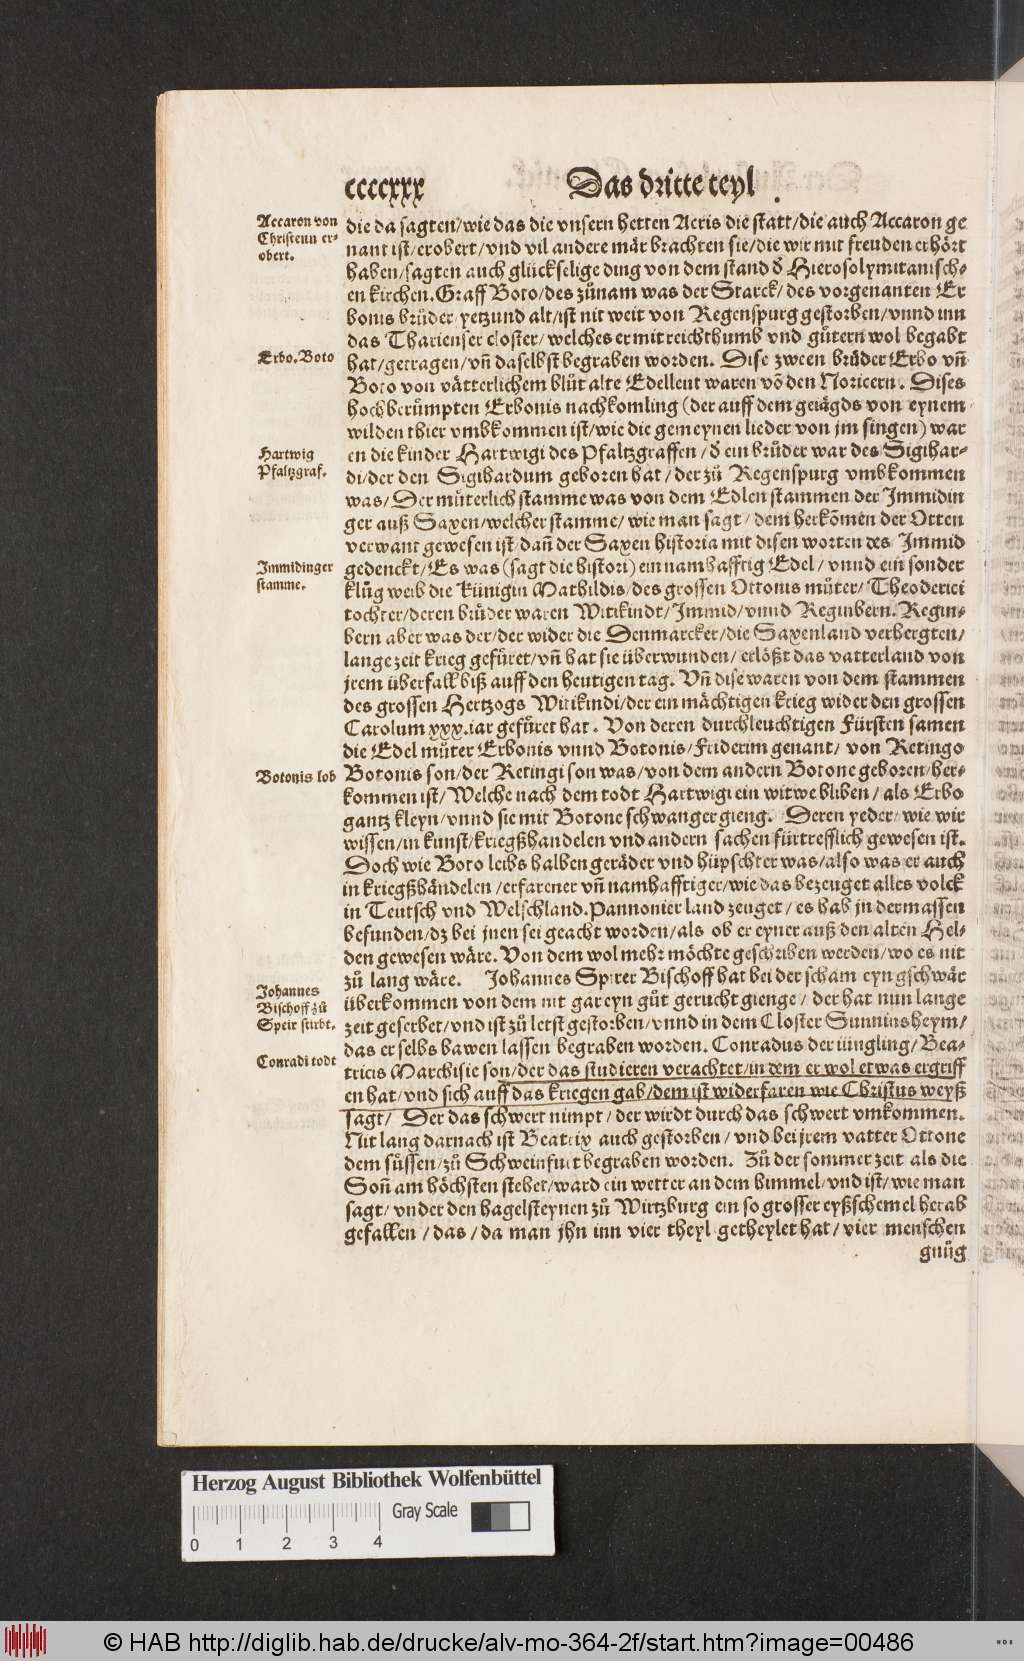 ccccxxx Das dritte teyl
Accaron von
Christenn er-
obert.
die da sagten/wie das die vnsern hetten Acris die statt/die auch Accaron ge
nant ist/erobert/vnd vil andere mär brachten sie/die wir mit freuden erhört
haben/sagten auch glückselige ding von dem stand d̕ Hierosolymitanisch-
en kirchen. Graff Boto/des zůnam was der Starck/des vorgenanten Er
bonis brůder yetzund alt/ist nit weit von Regenspurg gestorben/vnnd inn
das Tharienser closter/welches er mit reichthumb vnd gůtern wol begabt
Erbo. Boto
hat/getragen/vñ daselbst begraben worden. Dise zween brůder Erbo vñ
Boto von vätterlichem blůt alte Edelleut waren võ den Noricern. Dises
hochberůmpten Erbonis nachkomling (der auff dem geiägds von eynem
wilden thier vmbkommen ist/wie die gemeynen lieder von jm singen) war
Hartwig
Pfaltzgraf.
en die kinder Hartwigi des Pfaltzgraffen/d̕ ein brůder war des Sigihar-
di/der den Sigihardum geboren hat/der zů Regenspurg vmbkommen
was/Der můterlich stamme was von dem Edlen stammen der Immidin
ger auß Saxen/welcher stamme/wie man sagt/dem herkõmen der Otten
verwant gewesen ist/dañ der Saxen historia mit disen worten des Immid
Immidinger
stamme.
gedenckt/Es was (sagt die histori) ein namhafftig Edel/vnnd ein sonder
klůg weib die Künigin Mathildis/des grossen Ottonis můter/Theoderici
tochter/deren brůder waren Witikindt/Immid/vnnd Reginbern. Regin-
bern aber was der/der wider die Denmarcker/die Saxenland verhergten/
lange zeit krieg gefůret/vñ hat sie überwunden/erlößt das vatterland von
jrem überfall biß auff den heutigen tag. Vñ dise waren von dem stammen
des grossen Hertzogs Witikindi/der ein mächtigen krieg wider den grossen
Carolum xxx.iar gefůret hat. Von deren durchleuchtigen Fürsten samen
die Edel můter Erbonis vnnd Botonis/Friderun genant/von Retingo
Botonis lob
Botonis son/der Retingi son was/von dem andern Botone geboren/her-
kommen ist/Welche nach dem todt Hartwigi ein witwe bliben/als Erbo
gantz kleyn/vnnd sie mit Botone schwanger gieng. Deren yeder/wie wir
wissen/in kunst/kriegßhandelen vnd andern sachen fürtrefflich gewesen ist.
Doch wie Boto leibs halben geräder vnd hüpschter was/also was er auch
in kriegßhändelen/erfarener vñ namhafftiger/wie das bezeuget alles volck
in Teutsch vnd Welschland. Pannonier land zeuget/es hab jn dermassen
befunden/dz bei jnen sei geacht worden/als ob er eyner auß den alten Hel-
den gewesen wäre. Von dem wol mehr möchte geschriben werden/wo es nit
zů lang wäre. Johannes Spirer Bischoff hat bei der scham eyn gschwär
Johannes
Bischoff zů
Speir stirbt.
überkommen von dem nit gar eyn gůt gerucht gienge/der hat nun lange
zeit geserbet/vnd ist zů letst gestorben/vnnd in dem Closter Sunninsheym/
das er selbs bawen lassen begraben worden. Conradus der iüngling/Bea-
Conradi todt
tricis Marchisie son/der das studieren verachtet/in dem er wol etwas ergriff
en hat/vnd sich auff das kriegen gab/dem ist widerfaren wie Christus weyß
sagt/ Der das schwert nimpt/der wirdt durch das schwert vmkommen.
Nit lang darnach ist Beatrix auch gestorben/vnd bei jrem vatter Ottone
dem sůssen/zů Schweinfurt begraben worden. Zů der sommer zeit als die
Soñ am höchsten stehet/ward ein wetter an dem himmel/vnd ist/wie man
sagt/vnder den hagelsteynen zů Wirtzburg ein so grosser eyßschemel herab
gefallen/das/da man jhn inn vier theyl getheylet hat/vier menschen
gnůg
Herzog August Bibliothek Wolfenbüttel
Gray Scale
0 1 2 3 4
© HAB http://diglib.hab.de/drucke/alv-mo-364-2f/start.htm?image=00486